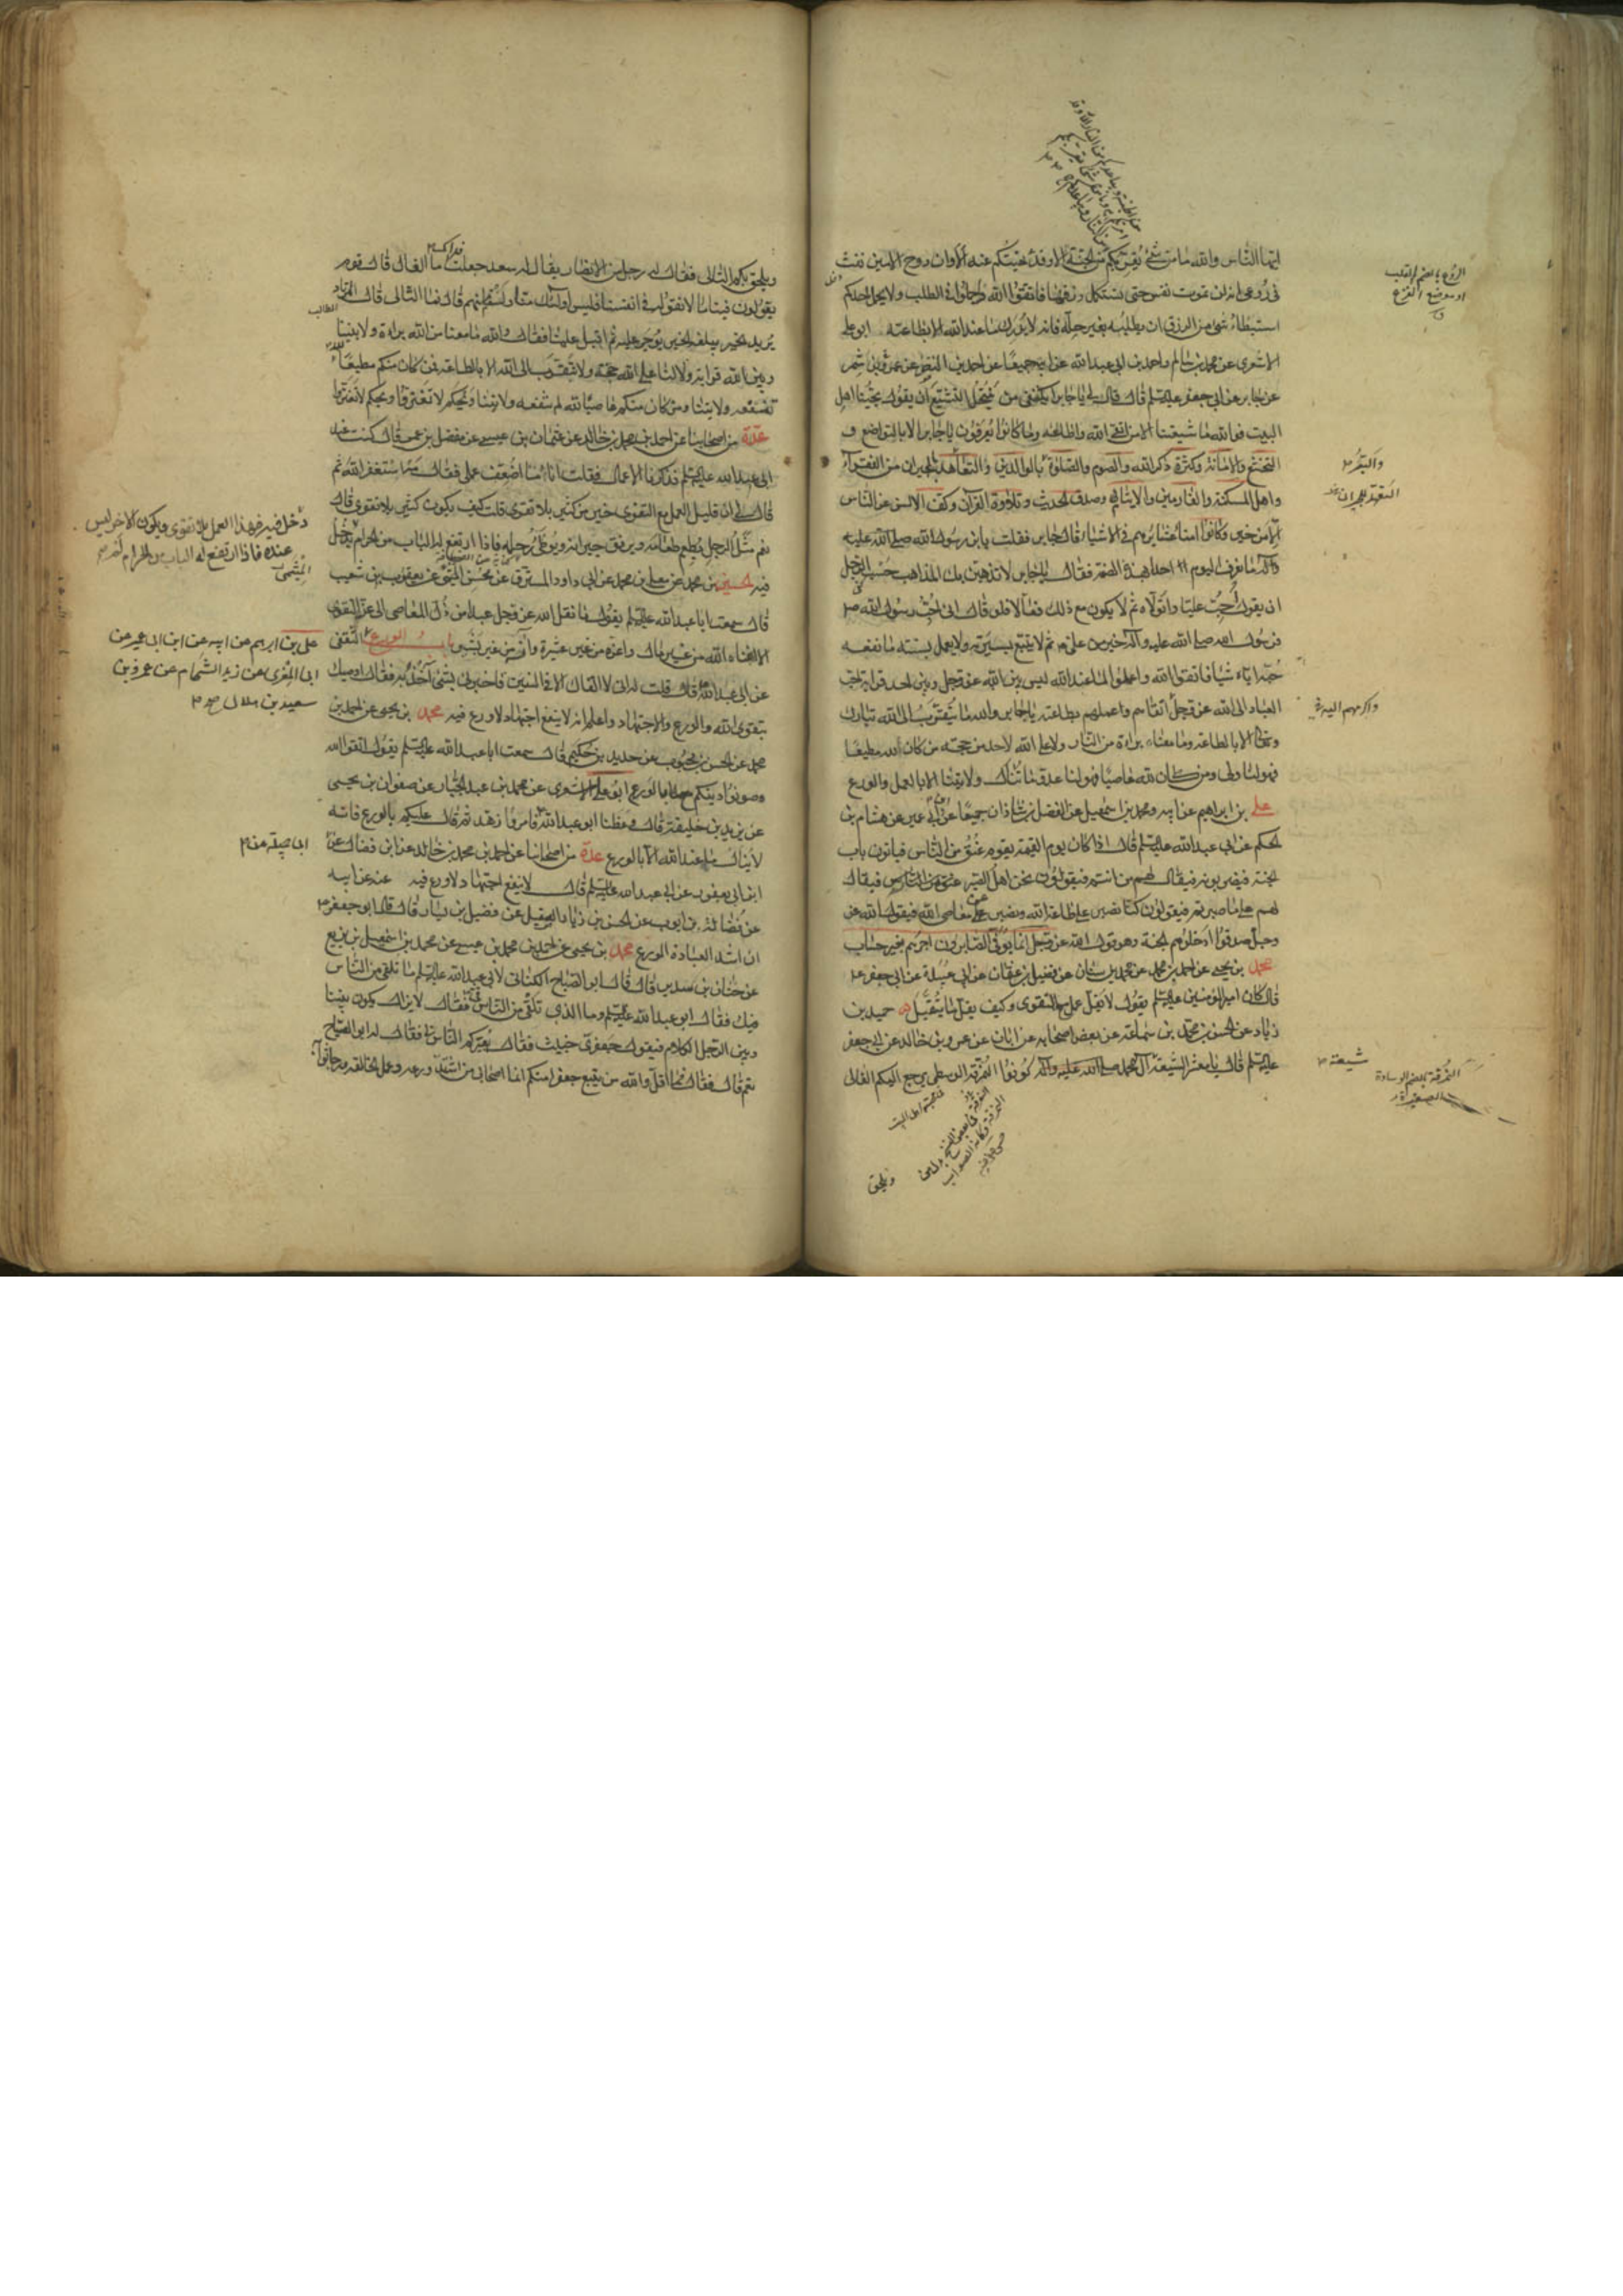 ايها الناس والله ما من شئ يقربكم من الجنة الا وقد نهيتكم عنه الا وان روح الامين نفث
في روعي انه لن تموت نفس حتى تستكمل رزقها فاتقوا الله واجملوا في الطلب ولا يحمل احدكم
استبطاء شئ من الرزق ان يطلبه بغير حله فانه لا يدرك ما عند الله الا بطاعته ابو علي
الاشعري عن محمد بن سالم واحمد بن ابي عبد الله عن ابيه جميعا عن احمد بن النضر عن عمرو بن شمر
عن جابر عن ابي جعفر عليه السلم قال قال لي يا جابر ايكتفي من ينتحل التشيع ان يقول بحبنا اهل
البيت فو الله ما شيعتنا الا من اتقى الله واطاعه وما كانوا يعرفون يا جابر الا بالتواضع و
التخشع والامانة وكثرة ذكر الله والصوم والصلوة بالوالدين والتعاهد للجيران من الفقراء
واهل المسكنة والغارمين والايتام وصدق الحديث وتلاوة القران وكف الالسن عن الناس
الا من خير وكانوا امناء عشايرهم في الاشياء قال جابر فقلت يا بن رسول الله صلى الله عليه
وآله ما نعرف اليوم احدا بهذه الصفة فقال يا جابر لا تذهبن بك المذاهب حسب الرجل
ان يقول احب عليا واتولاه ثم لا يكون مع ذلك فعالا فلو قال اني احب رسول الله
فرسول الله صلى الله عليه وآله خير من علي ثم لا يتبع سيرته ولا يعمل بسنته ما نفعه
حبه اياه شيئا فاتقوا الله واعملوا لما عند الله ليس بين الله عز وجل وبين احد قرابة احب
العباد الى الله عز وجل اتقاهم واعملهم بطاعته يا جابر والله ما يتقرب الى الله تبارك
وتعالى الا بالطاعة وما معنا براءة من النار ولا على الله لاحد من حجة من كان لله مطيعا
فهو لنا ولي ومن كان لله عاصيا فهو لنا عدو ما تنال ولايتنا الا بالعمل والورع
علي بن ابراهيم عن ابيه ومحمد بن اسمعيل عن الفضل بن شاذان جميعا عن ابن ابي عمير عن هشام بن
الحكم عن ابي عبد الله عليه السلم قال اذا كان يوم القيمة يقوم عنق من الناس فياتون باب
الجنة فيضربونه فيقال لهم من انتم فيقولون نحن اهل الصبر فيقال
لهم على ما صبرتم فيقولون كنا نصبر على طاعة الله ونصبر عن معاصي الله فيقول الله عز
وجل صدقوا ادخلوهم الجنة وهو قول الله عز وجل انما يوفى الصابرون اجرهم بغير حساب
محمد بن يحيى عن احمد بن محمد عن محمد بن سنان عن فضيل بن عثمان عن ابي عبيدة عن ابي جعفر ع
قال كان امير المؤمنين عليه السلم يقول لا يقل عمل مع التقوى وكيف يقل ما يتقبل حميد بن
زياد عن الحسن بن محمد بن سماعة عن بعض اصحابه عن ابان عن عمرو بن خالد عن ابي جعفر
عليه السلم قال يا معشر الشيعة آل محمد صلى الله عليه وآله كونوا النمرقة الوسطى يرجع اليكم الغالي
الروع بالضم القلب
او موضع الفزع
والبر
التعهد للجيران
واكرمهم اليه
شيعة
النمرقة بالضم الوسادة
الصغيرة
ويلحق
ويلحق بكم التالي فقال له رجل من الانصار يقال له سعد جعلت ما الغال قال قوم
يقولون فينا ما لا نقوله في انفسنا فليس اولئك منا ولسنا منهم قال فما التالي قال المرتاد
يريد الخير يبلغه الخير يوجر عليه ثم اقبل علينا فقال والله ما معنا من الله براءة ولا بيننا
وبين الله قرابة ولا لنا على الله حجة ولا نتقرب الى الله الا بالطاعة فمن كان منكم مطيعا
تنفعه ولايتنا ومن كان منكم عاصيا لله لم تنفعه ولايتنا ويحكم لا تغتروا ويحكم لا تغتروا
عدة من اصحابنا عن احمد بن محمد بن خالد عن عثمان بن عيسى عن مفضل بن عمر قال كنت عند
ابي عبد الله عليه السلم فذكرنا الاعمال فقلت انا ما اضعف عملي فقال مه استغفر الله ثم
قال لي ان قليل العمل مع التقوى خير من كثير بلا تقوى قلت كيف يكون كثير بلا تقوى قال
نعم مثل الرجل يطعم طعامه ويرفق جيرانه ويوطئ رحله فاذا ارتفع له الباب من الحرام يدخل
فيه الحسين بن محمد عن معلى بن محمد عن ابي داود المسترق عن محسن الميثمي عن يعقوب بن شعيب
قال سمعت ابا عبد الله عليه السلم يقول ما نقل الله عز وجل عبدا من ذل المعاصي الى عز التقوى
الا اغناه الله من غير مال واعزه من غير عشيرة وآنسه من غير بشر باب الورع الثقفي
عن ابي عبد الله قال قلت له اني لا القاك الا في السنين فاخبرني بشئ آخذ به فقال اوصيك
بتقوى الله والورع والاجتهاد واعلم انه لا ينفع اجتهاد لا ورع فيه محمد بن يحيى عن احمد بن
محمد عن الحسن بن محبوب عن حديد بن حكيم قال سمعت ابا عبد الله عليه السلم يقول اتقوا الله
وصونوا دينكم بالورع ابو علي الاشعري عن محمد بن عبد الجبار عن صفوان بن يحيى
عن يزيد بن خليفة قال وعظنا ابو عبد الله فامر وزهد ثم قال عليكم بالورع فانه
لا ينال ما عند الله الا بالورع عدة من اصحابنا عن احمد بن محمد بن خالد عن ابن فضال عن
ابن ابي يعفور عن ابي عبد الله عليه السلم قال لا ينفع اجتهاد لا ورع فيه عنه عن ابيه
عن فضالة بن ايوب عن الحسن بن زياد الصيقل عن فضيل بن يسار قال قال ابو جعفر
ان اشد العبادة الورع محمد بن يحيى عن احمد بن محمد بن عيسى عن محمد بن اسمعيل بن بزيع
عن حنان بن سدير قال قال ابو الصباح الكناني لابي عبد الله عليه السلم ما نلقى من الناس
فيك فقال ابو عبد الله عليه السلم وما الذي تلقى من الناس فقال لا يزال يكون بيننا
وبين الرجل الكلام فيقول جعفري خبيث فقال يعيركم الناس بي فقال له ابو الصباح
نعم قال فقال ما اقل والله من يتبع جعفرا منكم انما اصحابي من اشتد ورعه وعمل لخالقه ورجا ثوابه
الطالب
دخل فيه فهذا العمل بلا تقوى ويكون الاخر ليس
عنده فاذا ارتفع له الباب من الحرام لم
الميثمي
علي بن ابراهيم عن ابيه عن ابن ابي عمير عن
ابي المغرى عن زيد الشحام عن عمرو بن
سعيد بن هلال
ابي جميلة عن